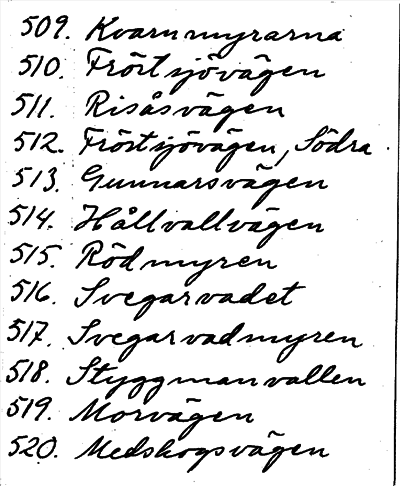 509. Kvarnmyrarna
510. Fröstsjövägen
511. Risåsvägen
512. Fröstsjövägen, Södra
513. Gunnarsvägen
514. Hållvallvägen
515. Rödmyren
516. Svegarvadet
517. Svegarvadmyren
518. Styggmanvallen
519. Morvägen
520. Medskogsvägen